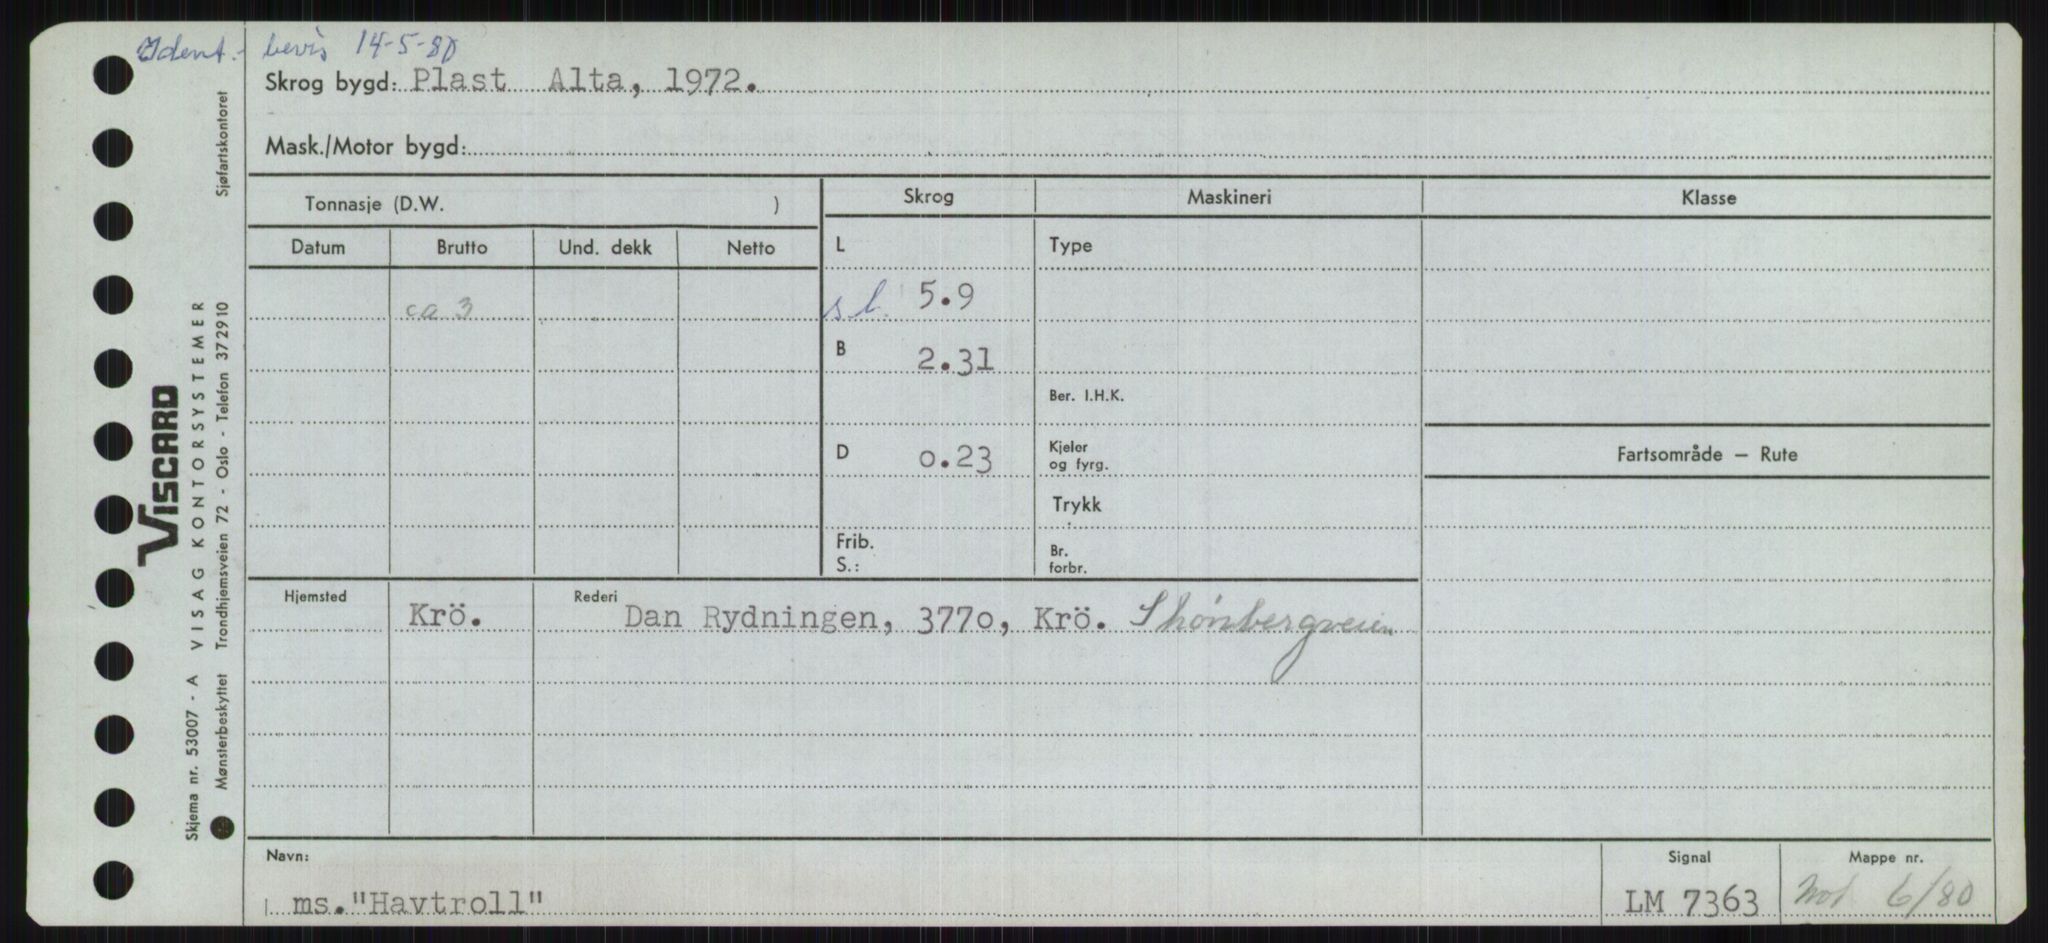 Ident.- bevis 14-5-80
Skrog bygd: Plast Alta, 1972.
Mask./Motor bygd:
Tonnasje (D.W. )
Skrog
Maskineri
Klasse
Datum
Brutto
Und. dekk
Netto
L
Type
ca 3
s l. 5.9
B 2.31
Ber. I.H.K.
D 0.23
Kjeler
og fyrg.
Fartsområde — Rute
Trykk
Frib.
S.:
Br.
forbr.
Hjemsted
Krö.
Rederi
Dan Rydningen, 3770, Krö. Skönbergveien
Navn:
ms."Havtroll"
Signal
LM 7363
Mappe nr.
6/80
Sjøfartskontoret
VISCARD
VISAG KONTORSYSTEMER
Trondhjemsveien 72 - Oslo - Telefon 372910
Skjema nr. 53007 - A
Mønsterbeskyttet